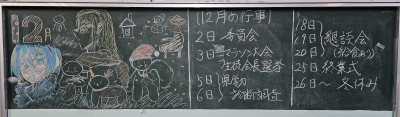 12月
12月の行事
2日 委員会
3日 マラソン大会
生徒会長選挙
5日 県芸
6日 診断
18日
19日 懇談会
20日 (給食あり)
25日 終業式
26日～ 冬休み